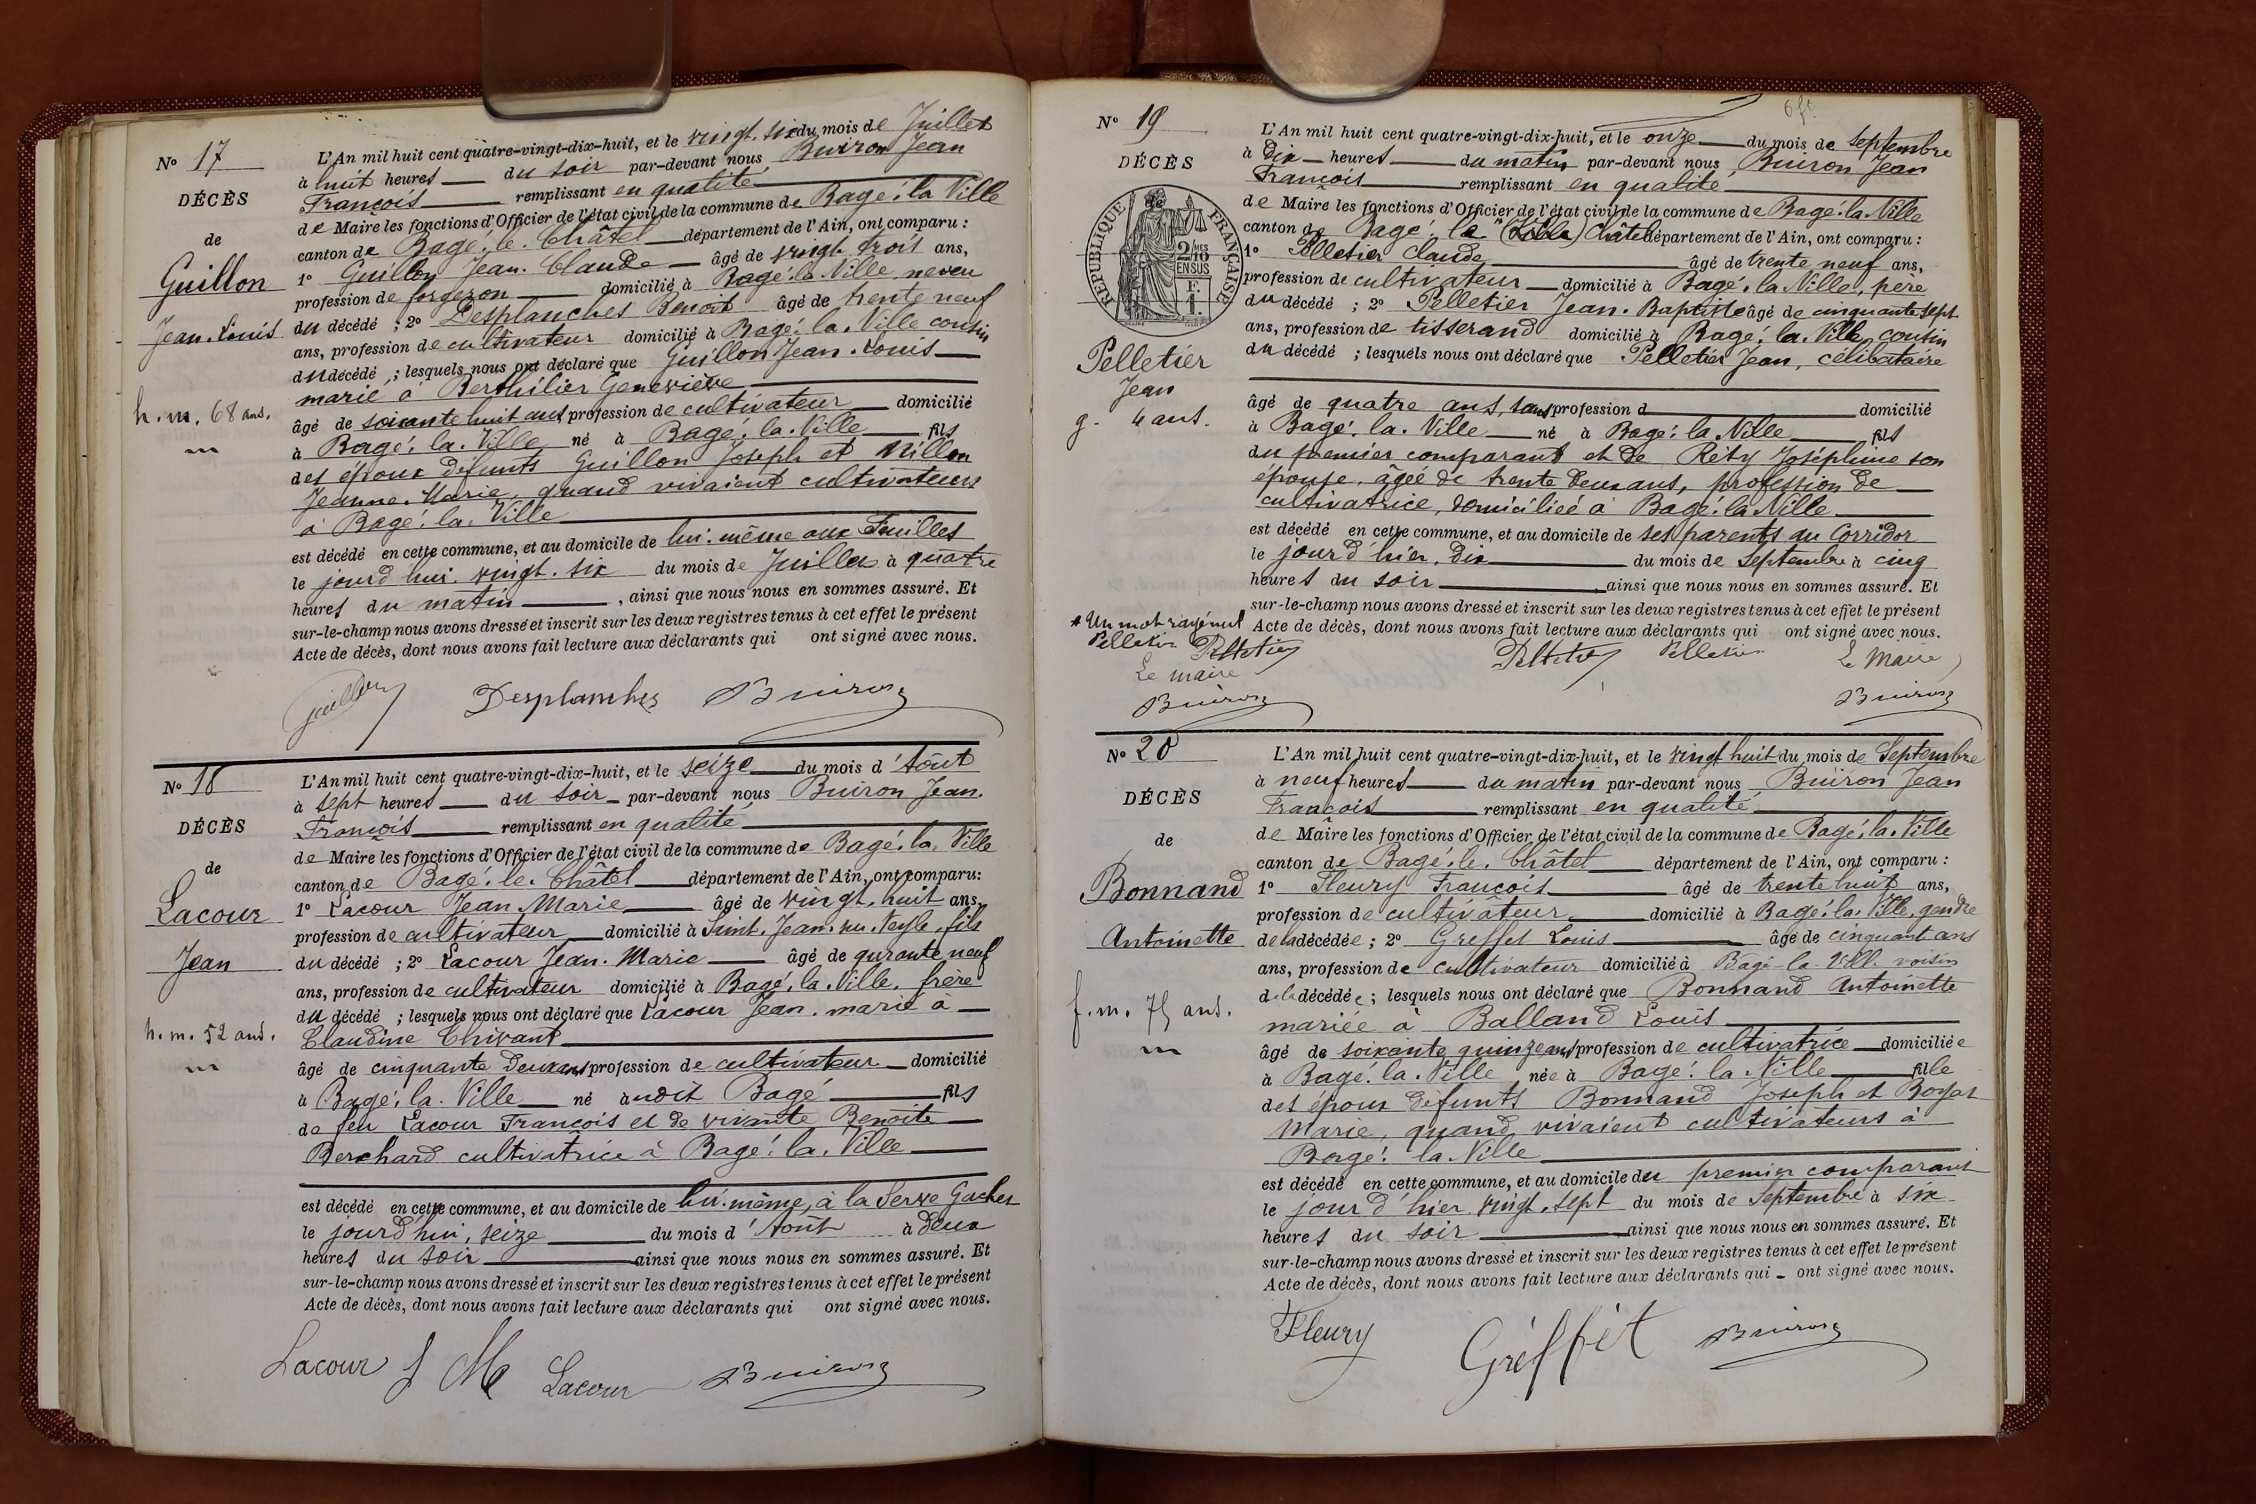 N° 17
DÉCÈS
de
Guillon
Jean-Louis
h. m. 68 ans.
L'An mil huit cent quatre-vingt-dix-huit, et le vingt-six du mois de Juillet
à huit heures du soir par-devant nous Buiron Jean
François remplissant en qualité
de Maire les fonctions d'Officier de l'état civil de la commune de Bagé-la-Ville
canton de Bagé-le-Châtel département de l'Ain, ont comparu :
1° Guillon Jean-Claude âgé de vingt-trois ans,
profession de forgeron domicilié à Bagé-la-Ville, neveu
du décédé ; 2° Desplanches Benoit âgé de trente neuf
ans, profession de cultivateur domicilié à Bagé-la-Ville cousin
du décédé ; lesquels nous ont déclaré que Guillon Jean-Louis
marié à Berthilier Geneviève
âgé de soixante huit ans, profession de cultivateur domicilié
à Bagé-la-Ville né à Bagé-la-Ville fils
des époux défunts Guillon Joseph et Millon
Jeanne-Marie, quand vivaient cultivateurs
à Bagé-la-Ville
est décédé en cette commune, et au domicile de lui-même aux Feuilles
le jourd'hui vingt-six du mois de Juillet à quatre
heures du matin , ainsi que nous nous en sommes assuré. Et
sur-le-champ nous avons dressé et inscrit sur les deux registres tenus à cet effet le présent
Acte de décès, dont nous avons fait lecture aux déclarants qui ont signé avec nous.
Guillon Desplanches Buiron
N° 18
DÉCÈS
de
Lacour
Jean
h. m. 52 ans.
L'An mil huit cent quatre-vingt-dix-huit, et le seize du mois d'Août
à sept heures du soir par-devant nous Buiron Jean
François remplissant en qualité
de Maire les fonctions d'Officier de l'état civil de la commune de Bagé-la-Ville
canton de Bagé-le-Châtel département de l'Ain, ont comparu :
1° Lacour Jean Marie âgé de vingt-huit ans,
profession de cultivateur domicilié à Saint-Jean-su-Veyle, fils
du décédé ; 2° Lacour Jean-Marie âgé de quarante neuf
ans, profession de cultivateur domicilié à Bagé-la-Ville, frère
du décédé ; lesquels nous ont déclaré que Lacour Jean, marié à
Claudine Chivant
âgé de cinquante deux ans profession de cultivateur domicilié
à Bagé-la-Ville né audit Bagé fils
de feu Lacour François et de vivante Benoite
Berchard cultivatrice à Bagé-la-Ville
est décédé en cette commune, et au domicile de lui-même, à la Serve Gacher
le jourd'hui, seize du mois d'Août à deux
heures du soir ainsi que nous nous en sommes assuré. Et
sur-le-champ nous avons dressé et inscrit sur les deux registres tenus à cet effet le présent
Acte de décès, dont nous avons fait lecture aux déclarants qui ont signé avec nous.
Lacour J M Lacour Buiron
N° 19
DÉCÈS
RÉPUBLIQUE FRANÇAISE
2/10 MES
EN SUS
Pelletier
Jean
g. 4 ans.
L'An mil huit cent quatre-vingt-dix-huit, et le onze du mois de Septembre
à Dix heures du matin par-devant nous Buiron Jean
François remplissant en qualité
de Maire les fonctions d'Officier de l'état civil de la commune de Bagé-la-Ville
canton de Bagé-le (Ville) Châtel département de l'Ain, ont comparu :
1° Pelletier Claude âgé de trente neuf ans,
profession de cultivateur domicilié à Bagé-la-Ville, père
du décédé ; 2° Pelletier Jean-Baptiste âgé de cinquante sept
ans, profession de tisserand domicilié à Bagé-la-Ville, cousin
du décédé ; lesquels nous ont déclaré que Pelletier Jean, célibataire
âgé de quatre ans, sans profession d domicilié
à Bagé-la-Ville né à Bagé-la-Ville fils
du premier comparant et de Réty Joséphine son
épouse, âgée de trente deux ans, profession de
cultivatrice, domiciliée à Bagé-la-Ville
est décédé en cette commune, et au domicile de ses parents au Corridor
le jour d'hier, Dix du mois de Septembre à cinq
heures du soir ainsi que nous nous en sommes assuré. Et
sur-le-champ nous avons dressé et inscrit sur les deux registres tenus à cet effet le présent
Acte de décès, dont nous avons fait lecture aux déclarants qui ont signé avec nous.
Un mot rayé nul
Pelletier Pelletier
Le maire
Buiron
Pelletier Pelletier Le Maire
Buiron
N° 20
DÉCÈS
de
Bonnand
Antoinette
f. m. 75 ans.
L'An mil huit cent quatre-vingt-dix-huit, et le vingt huit du mois de Septembre
à neuf heures du matin par-devant nous Buiron Jean
François remplissant en qualité
de Maire les fonctions d'Officier de l'état civil de la commune de Bagé-la-Ville
canton de Bagé-le-Châtel département de l'Ain, ont comparu :
1° Fleury François âgé de trente huit ans,
profession de cultivateur domicilié à Bagé-la-Ville, gendre
de la décédée ; 2° Greffet Louis âgé de cinquant ans
ans, profession de cultivateur domicilié à Bagé-la-Ville voisin
de la décédée ; lesquels nous ont déclaré que Bonnand Antoinette
mariée à Balland Louis
âgé de soixante quinze ans profession de cultivatrice domiciliée
à Bagé-la-Ville née à Bagé-la-Ville fille
des époux défunts Bonnand Joseph et Boyat
Marie, quand vivaient cultivateurs à
Bagé-la-Ville
est décédé en cette commune, et au domicile du premier comparant
le jour d'hier vingt-sept du mois de Septembre à six
heures du soir ainsi que nous nous en sommes assuré. Et
sur-le-champ nous avons dressé et inscrit sur les deux registres tenus à cet effet le présent
Acte de décès, dont nous avons fait lecture aux déclarants qui ont signé avec nous.
Fleury Greffet Buiron